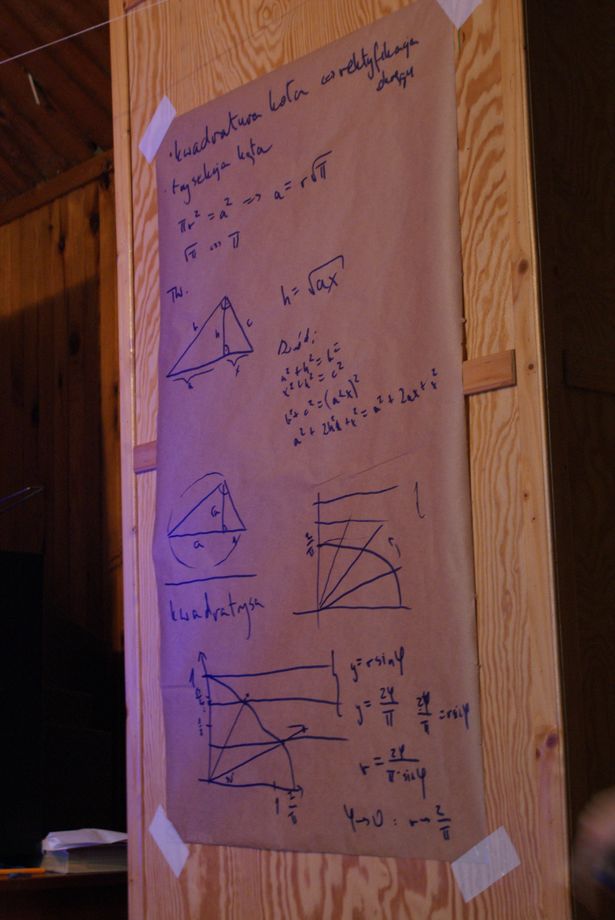 · kwadratura koła ⇔ rektyfikacja
okręgu
· trysekcja kąta
πr² = a² ⇒ a = r√π
√π ⇔ π
Tw.
h = √ax
b
h
c
a
x
Dowód:
a² + h² = b²
x² + h² = c²
b² + c² = (a+x)²
a² + 2h² + x² = a² + 2ax + x²
√a
a
1
kwadratrysa
y = r sin φ
y = 2φ/π
2φ/π = r sin φ
r = 2φ/(π·sin φ)
φ → 0 : r → 2/π
1
1
2/π